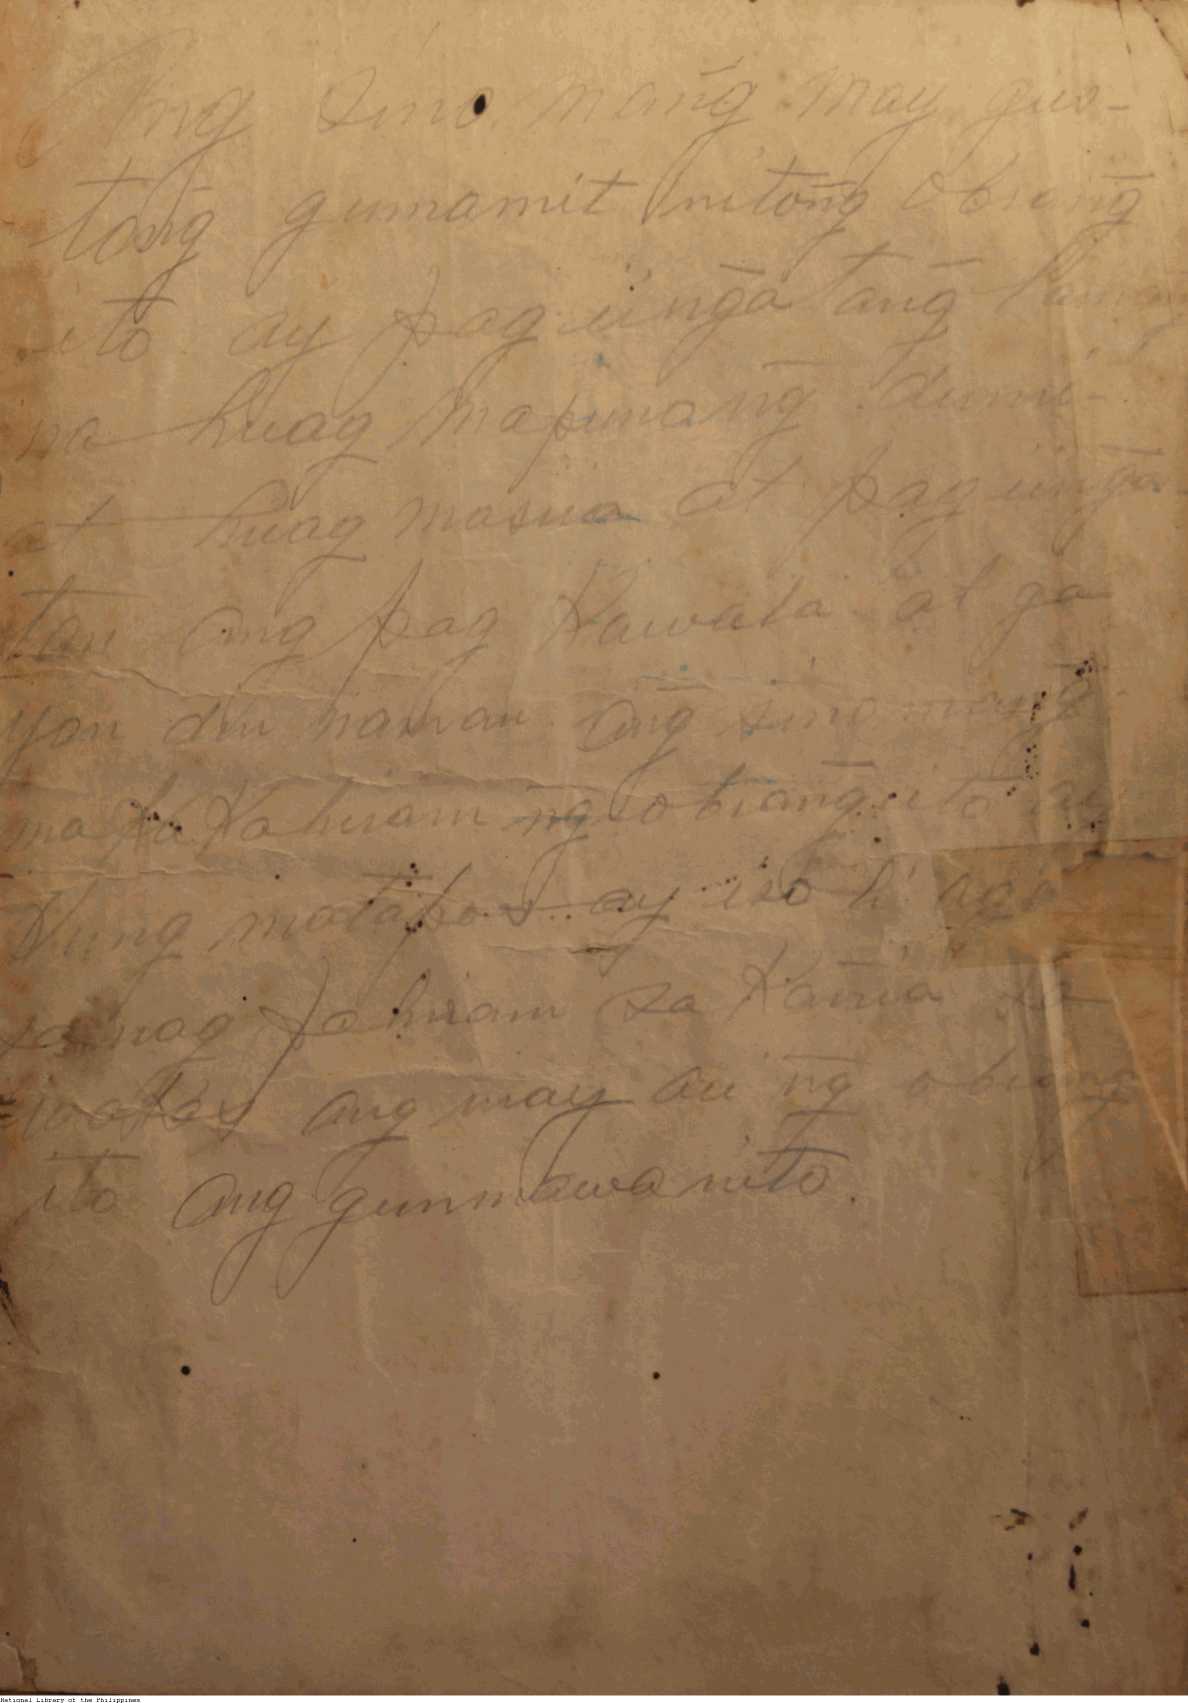 Ang sino mang̃ may gus-
tong̃ gumamit nitong̃ obrang̃
ito ay pag iing̃a tang̃ lamang
na huag mapunang̃ dumi-
at huag masira at pag iing̃a
tan ang pag kawala at ga
yan din naman ang̃ sino mang̃
maka kahiram ng̃ obrang̃ ito ay
Kung matapos ay iso li agad
sa nag pahiram sa kania sa
wakas ang may ari ng̃ obrang
ito ang gunmawa nito.
National Library of the Philippines